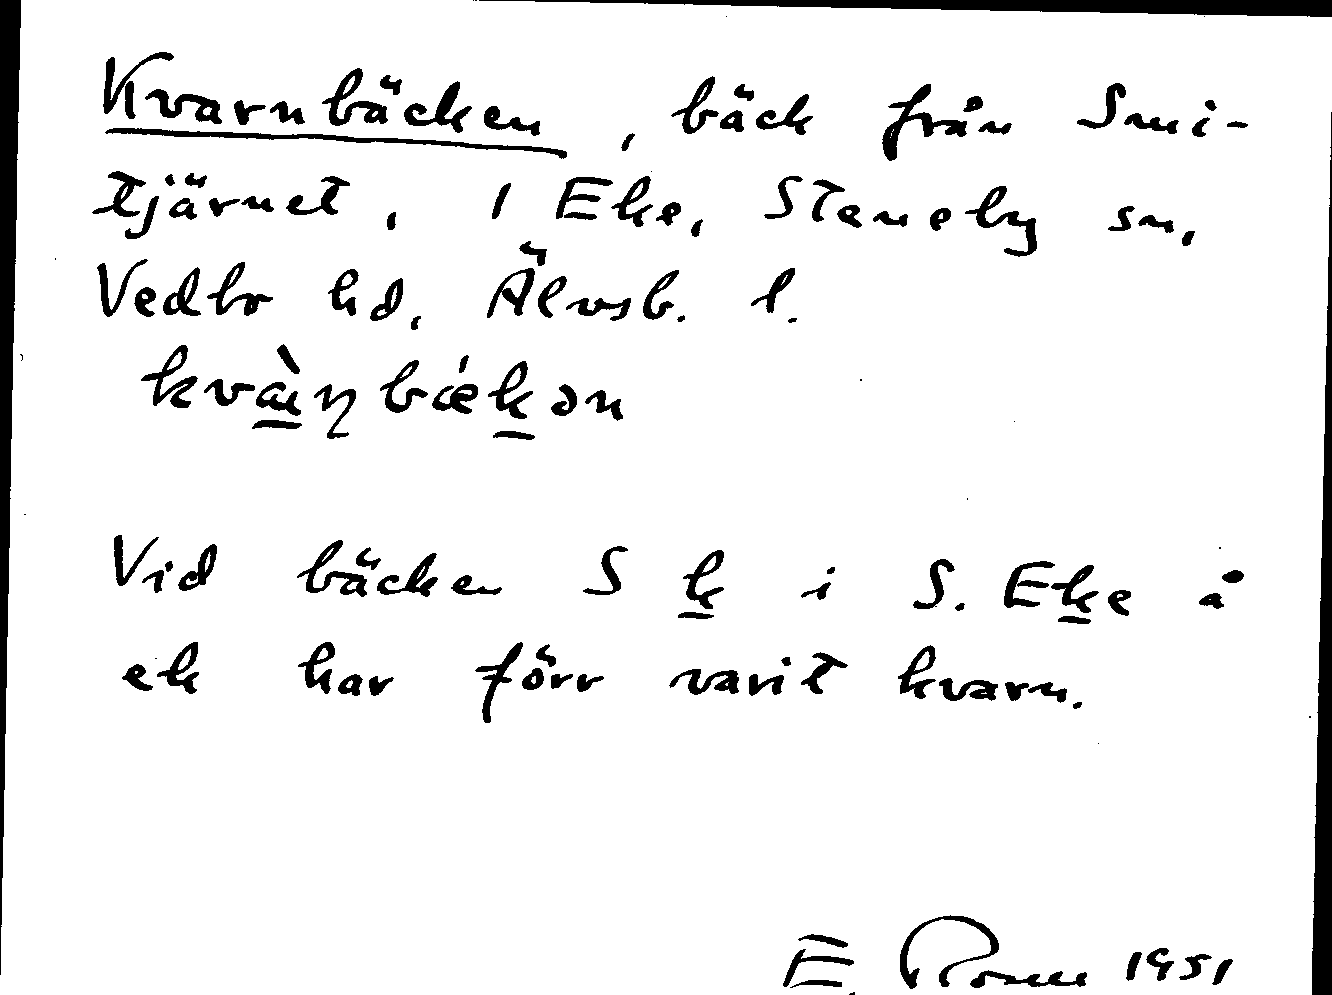 Kvarnbäcken, bäck från Smi-
tjärnet, 1 Eke, Steneby sn,
Vedbo hd, Älvsb. l.
kvàɳbǽkən
Vid bäcken S k i S. Eke å
ek har förr varit kvarn.
E. 1951